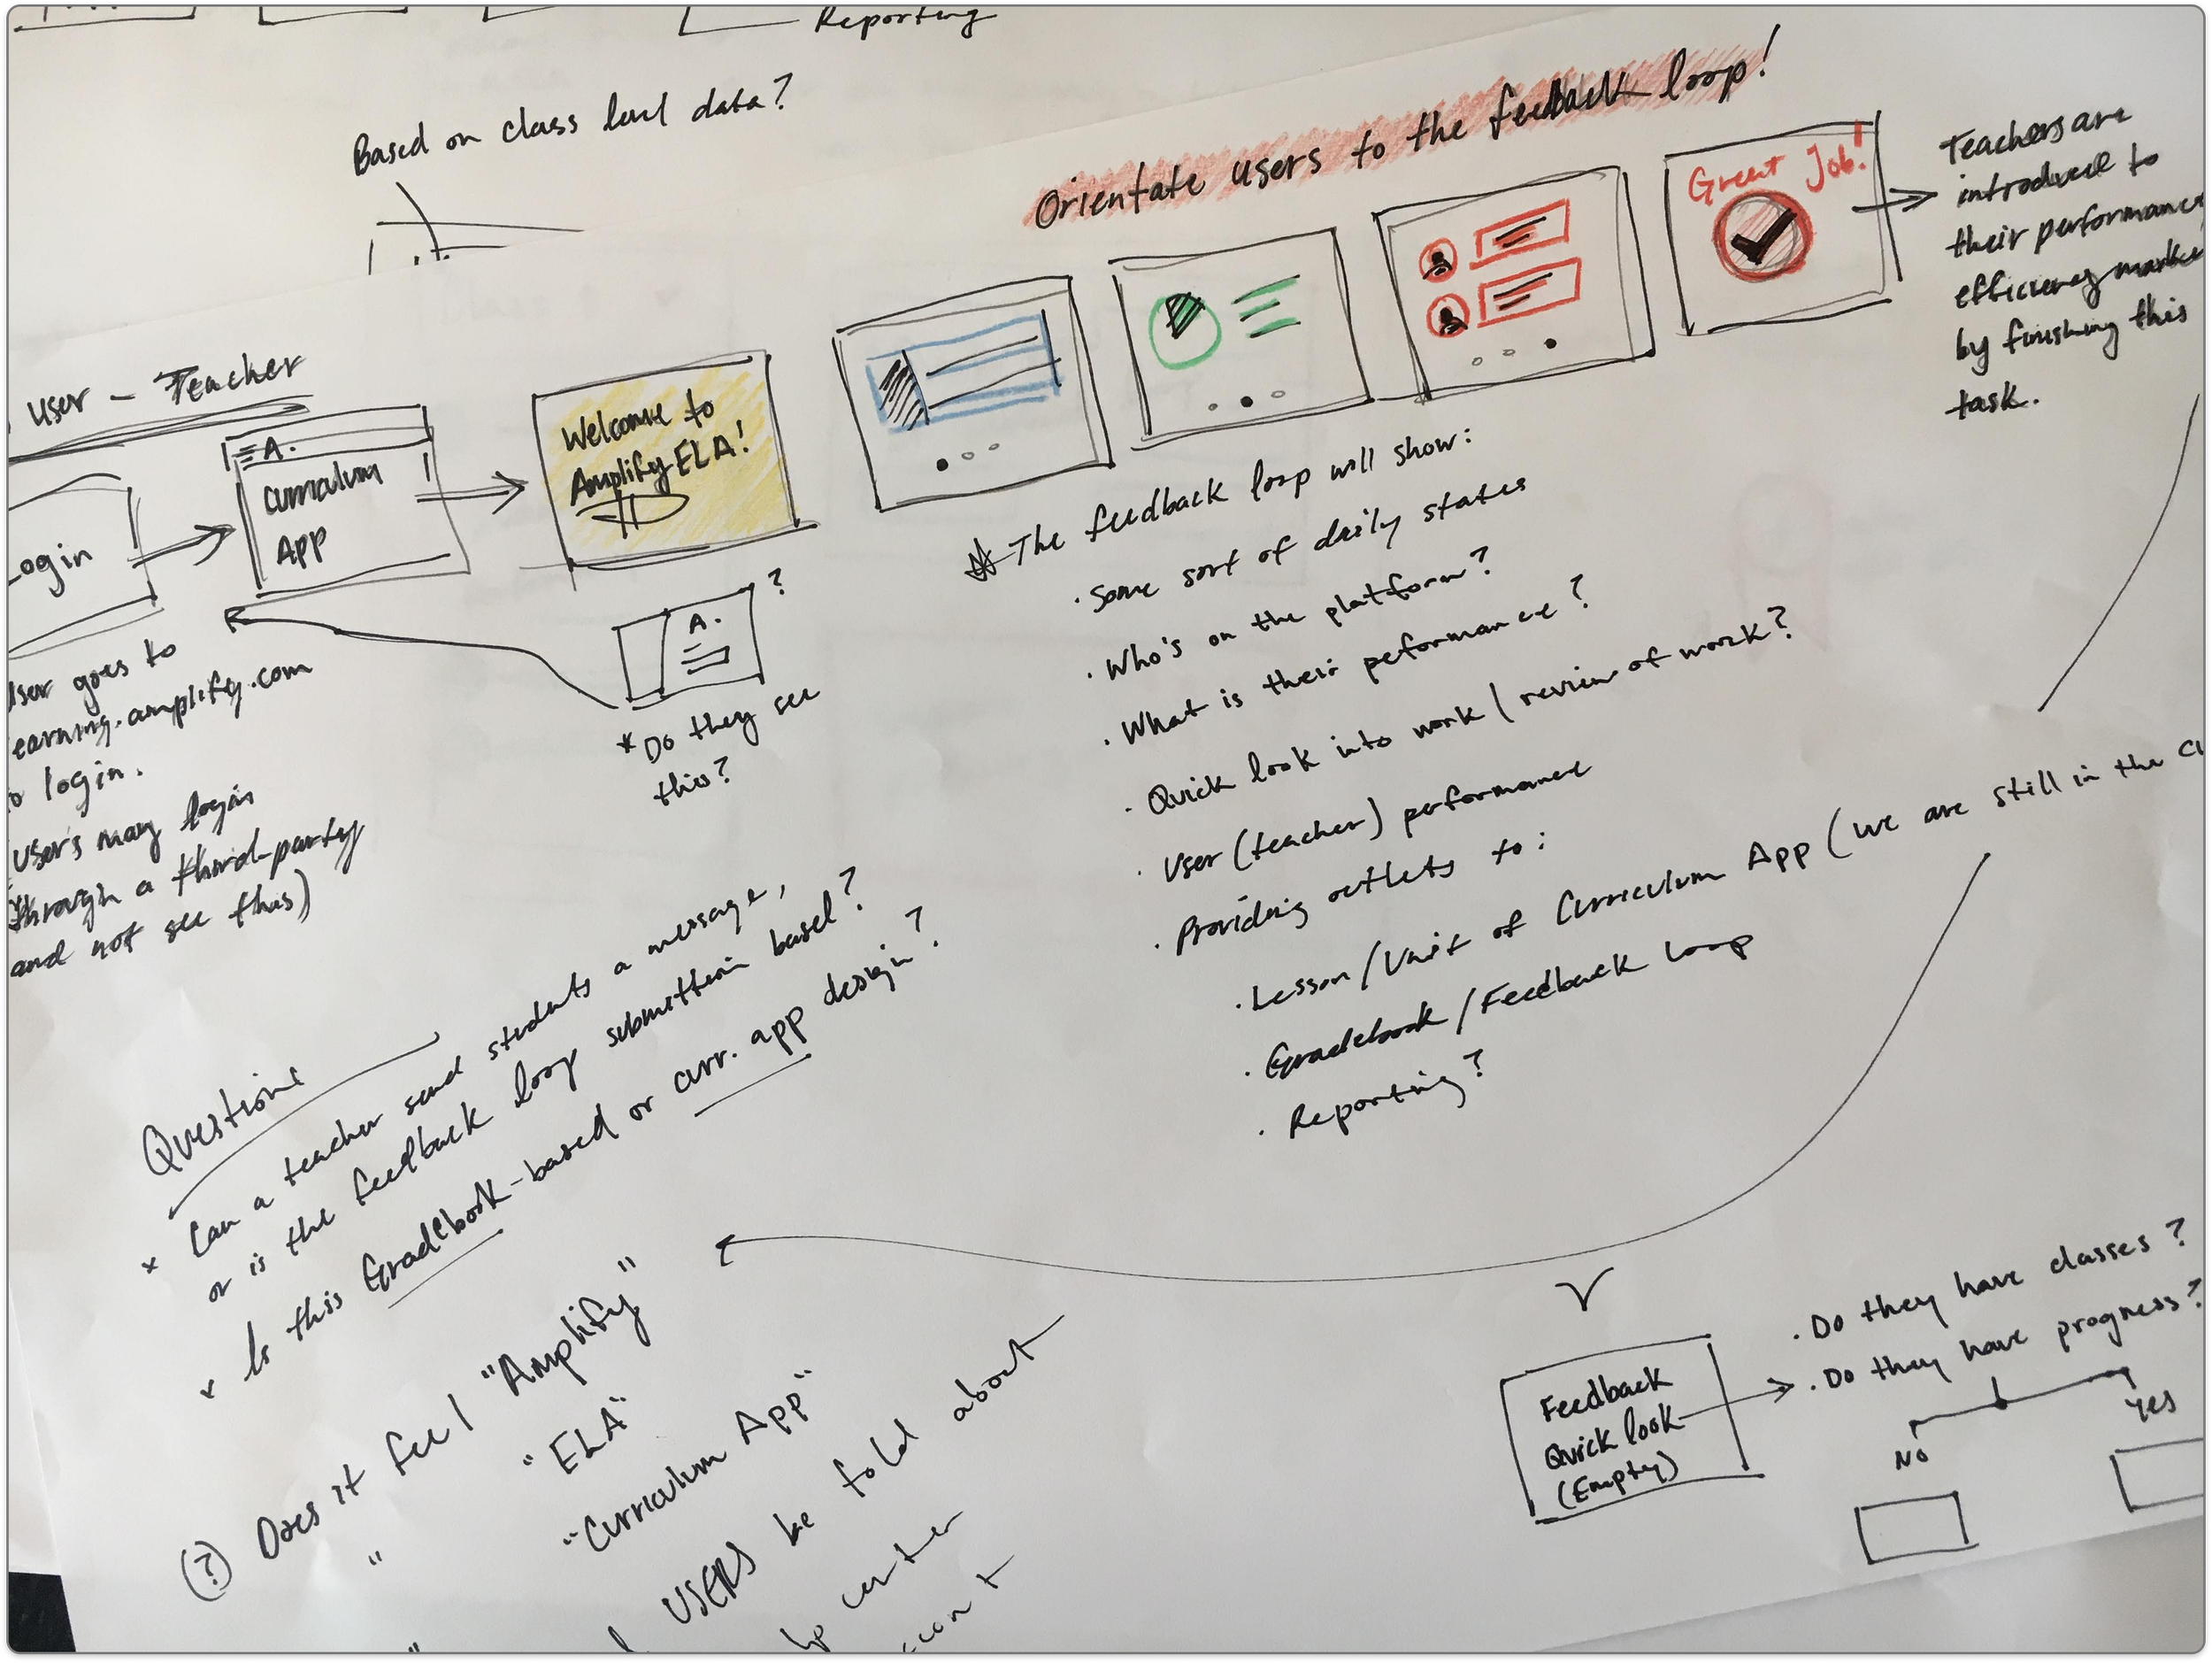 Reporting
Based on class level data?
Orientate users to the feedback loop!
Great Job!
Teachers are
introduced to
their performance
efficiency
by finishing this
task.
user - Teacher
Login
A.
Curriculum
App
Welcome to
Amplify ELA!
A.
?
*Do they see
this?
User goes to
earning.amplify.com
to login.
Users may login
through a third-party
and not see this)
The feedback loop will show:
· Some sort of daily states
· Who's on the platform?
· What is their peformance?
· Quick look into work / review of work?
· User (teacher) performance
· Providing outlets to:
· Lesson/Unit of Curriculum App (we are still in the
· Gradebook/Feedback Loop
· Reporting?
Questions
* Can a teacher send students a message,
or is the feedback loop submittion based?
* Is this Gradebook-based or curr. app design?
(?) Does it feel "Amplify"
" "ELA"
"Curriculum App"
USERS be told about
center
Feedback
Quick look
(Empty)
· Do they have classes?
· Do they have progress?
No
Yes